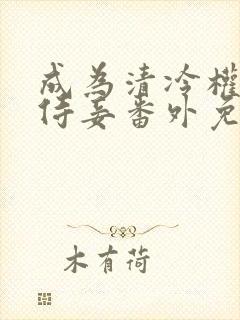 成为清冷權
侍妾番外免
木有荷